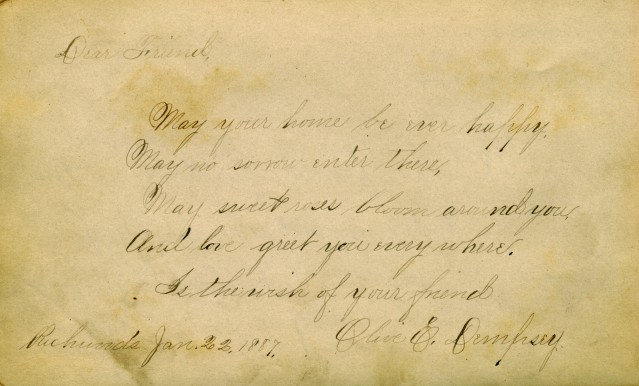 Dear Friend,
May your home be ever happy.
May no sorrow enter there,
May sweet roses bloom around you,
And love greet you every where.
Is the wish of your friend
Richmonds Jan. 22, 1887. Olive E. Dempsey.